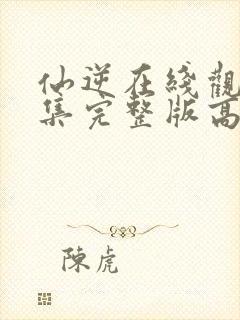 仙逆在綫觀
集完整版高
陳虎